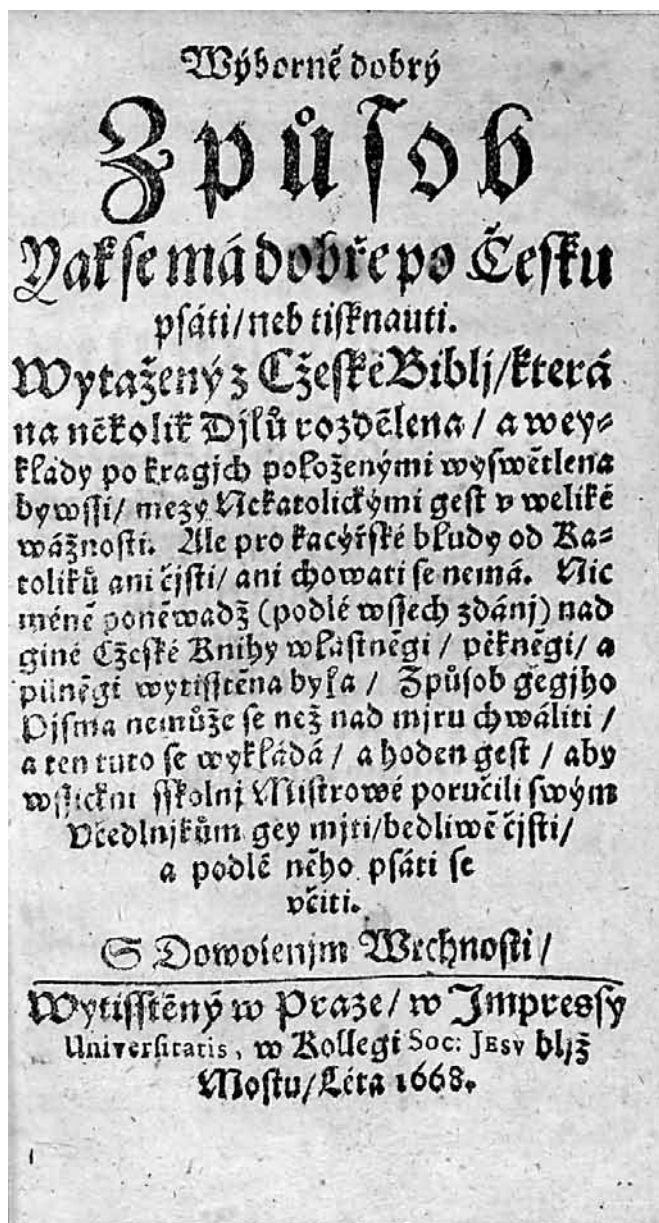 Wýborně dobrý
Způſob
Yak ſe má dobře po Čeſku
pſáti / neb tiſknauti.
Wytažený z Cžeſké Biblj / která
na několik Djlů rozdělena / a wey⸗
klady po kragjch položenými wyſwětlena
bywſſi / mezy Nekatolickými geſt v weliké
wážnoſti. Ale pro kacýřſké bludy od Ka⸗
tolíků ani čjſti / ani chowati ſe nemá. Nic
méně poněwadž (podlé wſſech zdánj) nad
giné Cžeſké Knihy wlaſtněgi / pěkněgi / a
pilněgi wytiſſtěna byla / Způſob gegjho
Pjſma nemůže ſe než nad mjru chwáliti /
a ten tuto ſe wykládá / a hoden geſt / aby
wſſickni ſſkolnj Miſtrowé poručili ſwým
Včedlnjkům gey mjti / bedliwě čjſti /
a podlé něho pſáti ſe
včiti.
S Dowolenjm Wrchnoſti /
Wytiſſtěný w Praze / w Jmpreſſy
Univerſitatis, w Kollegi Soc: JEsv bljž
Moſtu / Léta 1668.